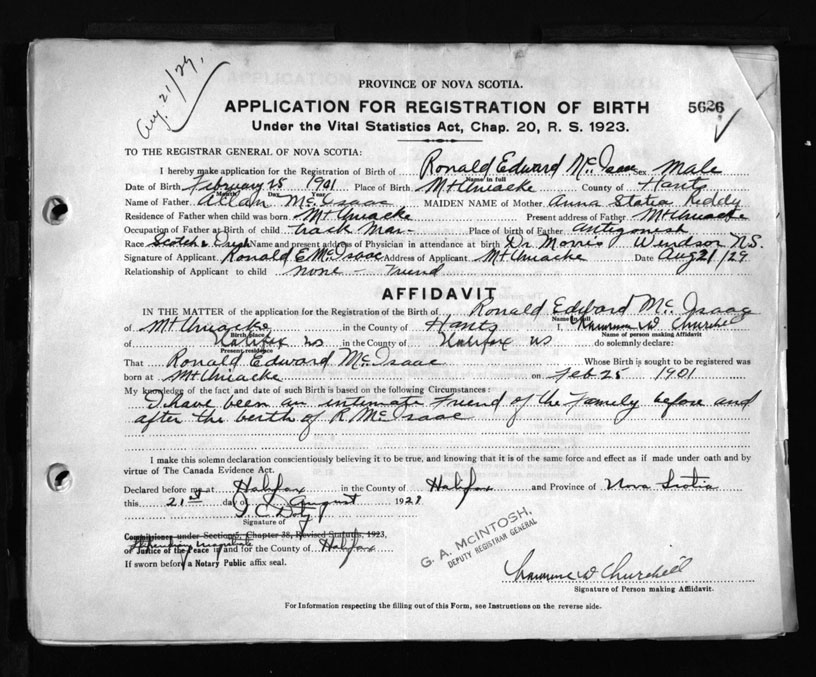 Aug. 21/29.
PROVINCE OF NOVA SCOTIA.
APPLICATION FOR REGISTRATION OF BIRTH 5626
Under the Vital Statistics Act, Chap. 20, R. S. 1923.
TO THE REGISTRAR GENERAL OF NOVA SCOTIA:
I hereby make application for the Registration of Birth of Ronald Edward McIsaac Sex Male
Name in full
Date of Birth February 25 1901 Place of Birth Mt Uniacke County of Hants
Month Day Year
Name of Father Allan McIsaac MAIDEN NAME of Mother Anna Statia Reddy
Residence of Father when child was born Mt Uniacke Present address of Father Mt Uniacke
Occupation of Father at Birth of child track man Place of birth of Father Antigonish
Race Scotch & Irish Name and present address of Physician in attendance at birth Dr Morris Windsor N.S.
Signature of Applicant Ronald E McIsaac Address of Applicant Mt Uniacke Date Aug 21/29
Relationship of Applicant to child none - friend
AFFIDAVIT
IN THE MATTER of the application for the Registration of the Birth of Ronald Edward McIsaac
Name in full
of Mt Uniacke in the County of Hants I, W Churchill
Birth place Name of person making Affidavit
of Halifax NS in the County of Halifax NS do solemnly declare:
Present residence
That Ronald Edward McIsaac Whose Birth is sought to be registered was
born at Mt Uniacke on Feb 25 1901
My knowledge of the fact and date of such Birth is based on the following Circumstances:
I have been an intimate friend of the family before and
after the birth of R McIsaac
I make this solemn declaration conscientiously believing it to be true, and knowing that it is of the same force and effect as if made under oath and by
virtue of The Canada Evidence Act.
Declared before me at Halifax in the County of Halifax and Province of Nova Scotia
this 21st day of August 1929
Signature of
Commissioner under Section 6, Chapter 38, Revised Statutes, 1923,
Stipendiary magistrate
or Justice of the Peace in and for the County of Halifax
If sworn before a Notary Public affix seal.
G. A. McINTOSH,
DEPUTY REGISTRAR GENERAL
W Churchill
Signature of Person making Affidavit.
For Information respecting the filling out of this Form, see Instructions on the reverse side.